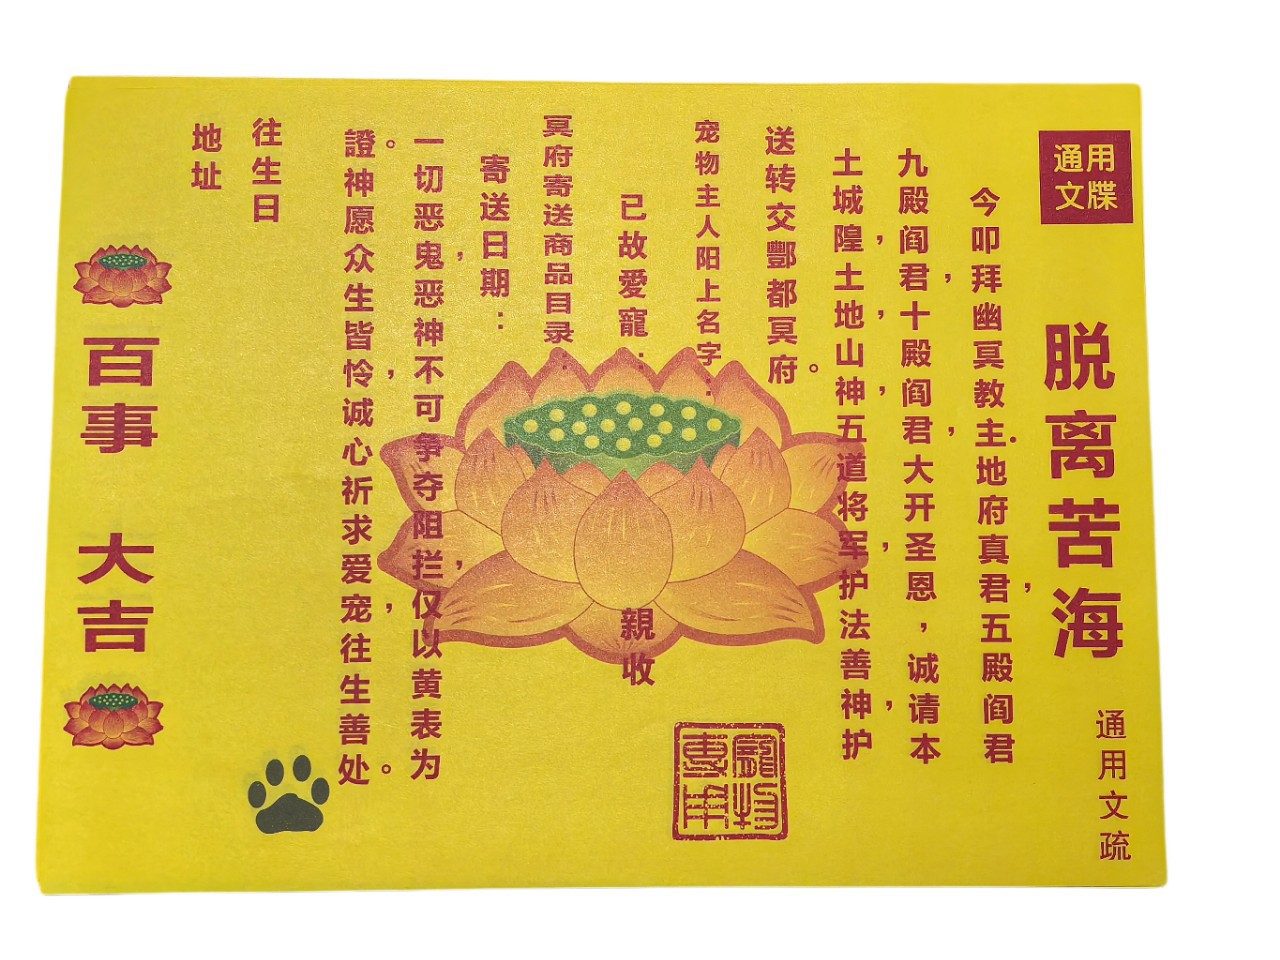 通用
文牒
脱离苦海
通用文疏
今叩拜幽冥教主.地府真君，五殿阎君
九殿阎君，十殿阎君，大开圣恩，诚请本
土城隍，土地，山神，五道将军，护法善神，护
送转交酆都冥府。
宠物主人阳上名字：
已故爱寵：
親收
冥府寄送商品目录：
寄送日期：
一切恶鬼，恶神不可争夺阻拦，仅以黄表为
證。神愿众生皆怜，诚心祈求爱宠，往生善处。
往生日
地址
百事 大吉
寵物
專用